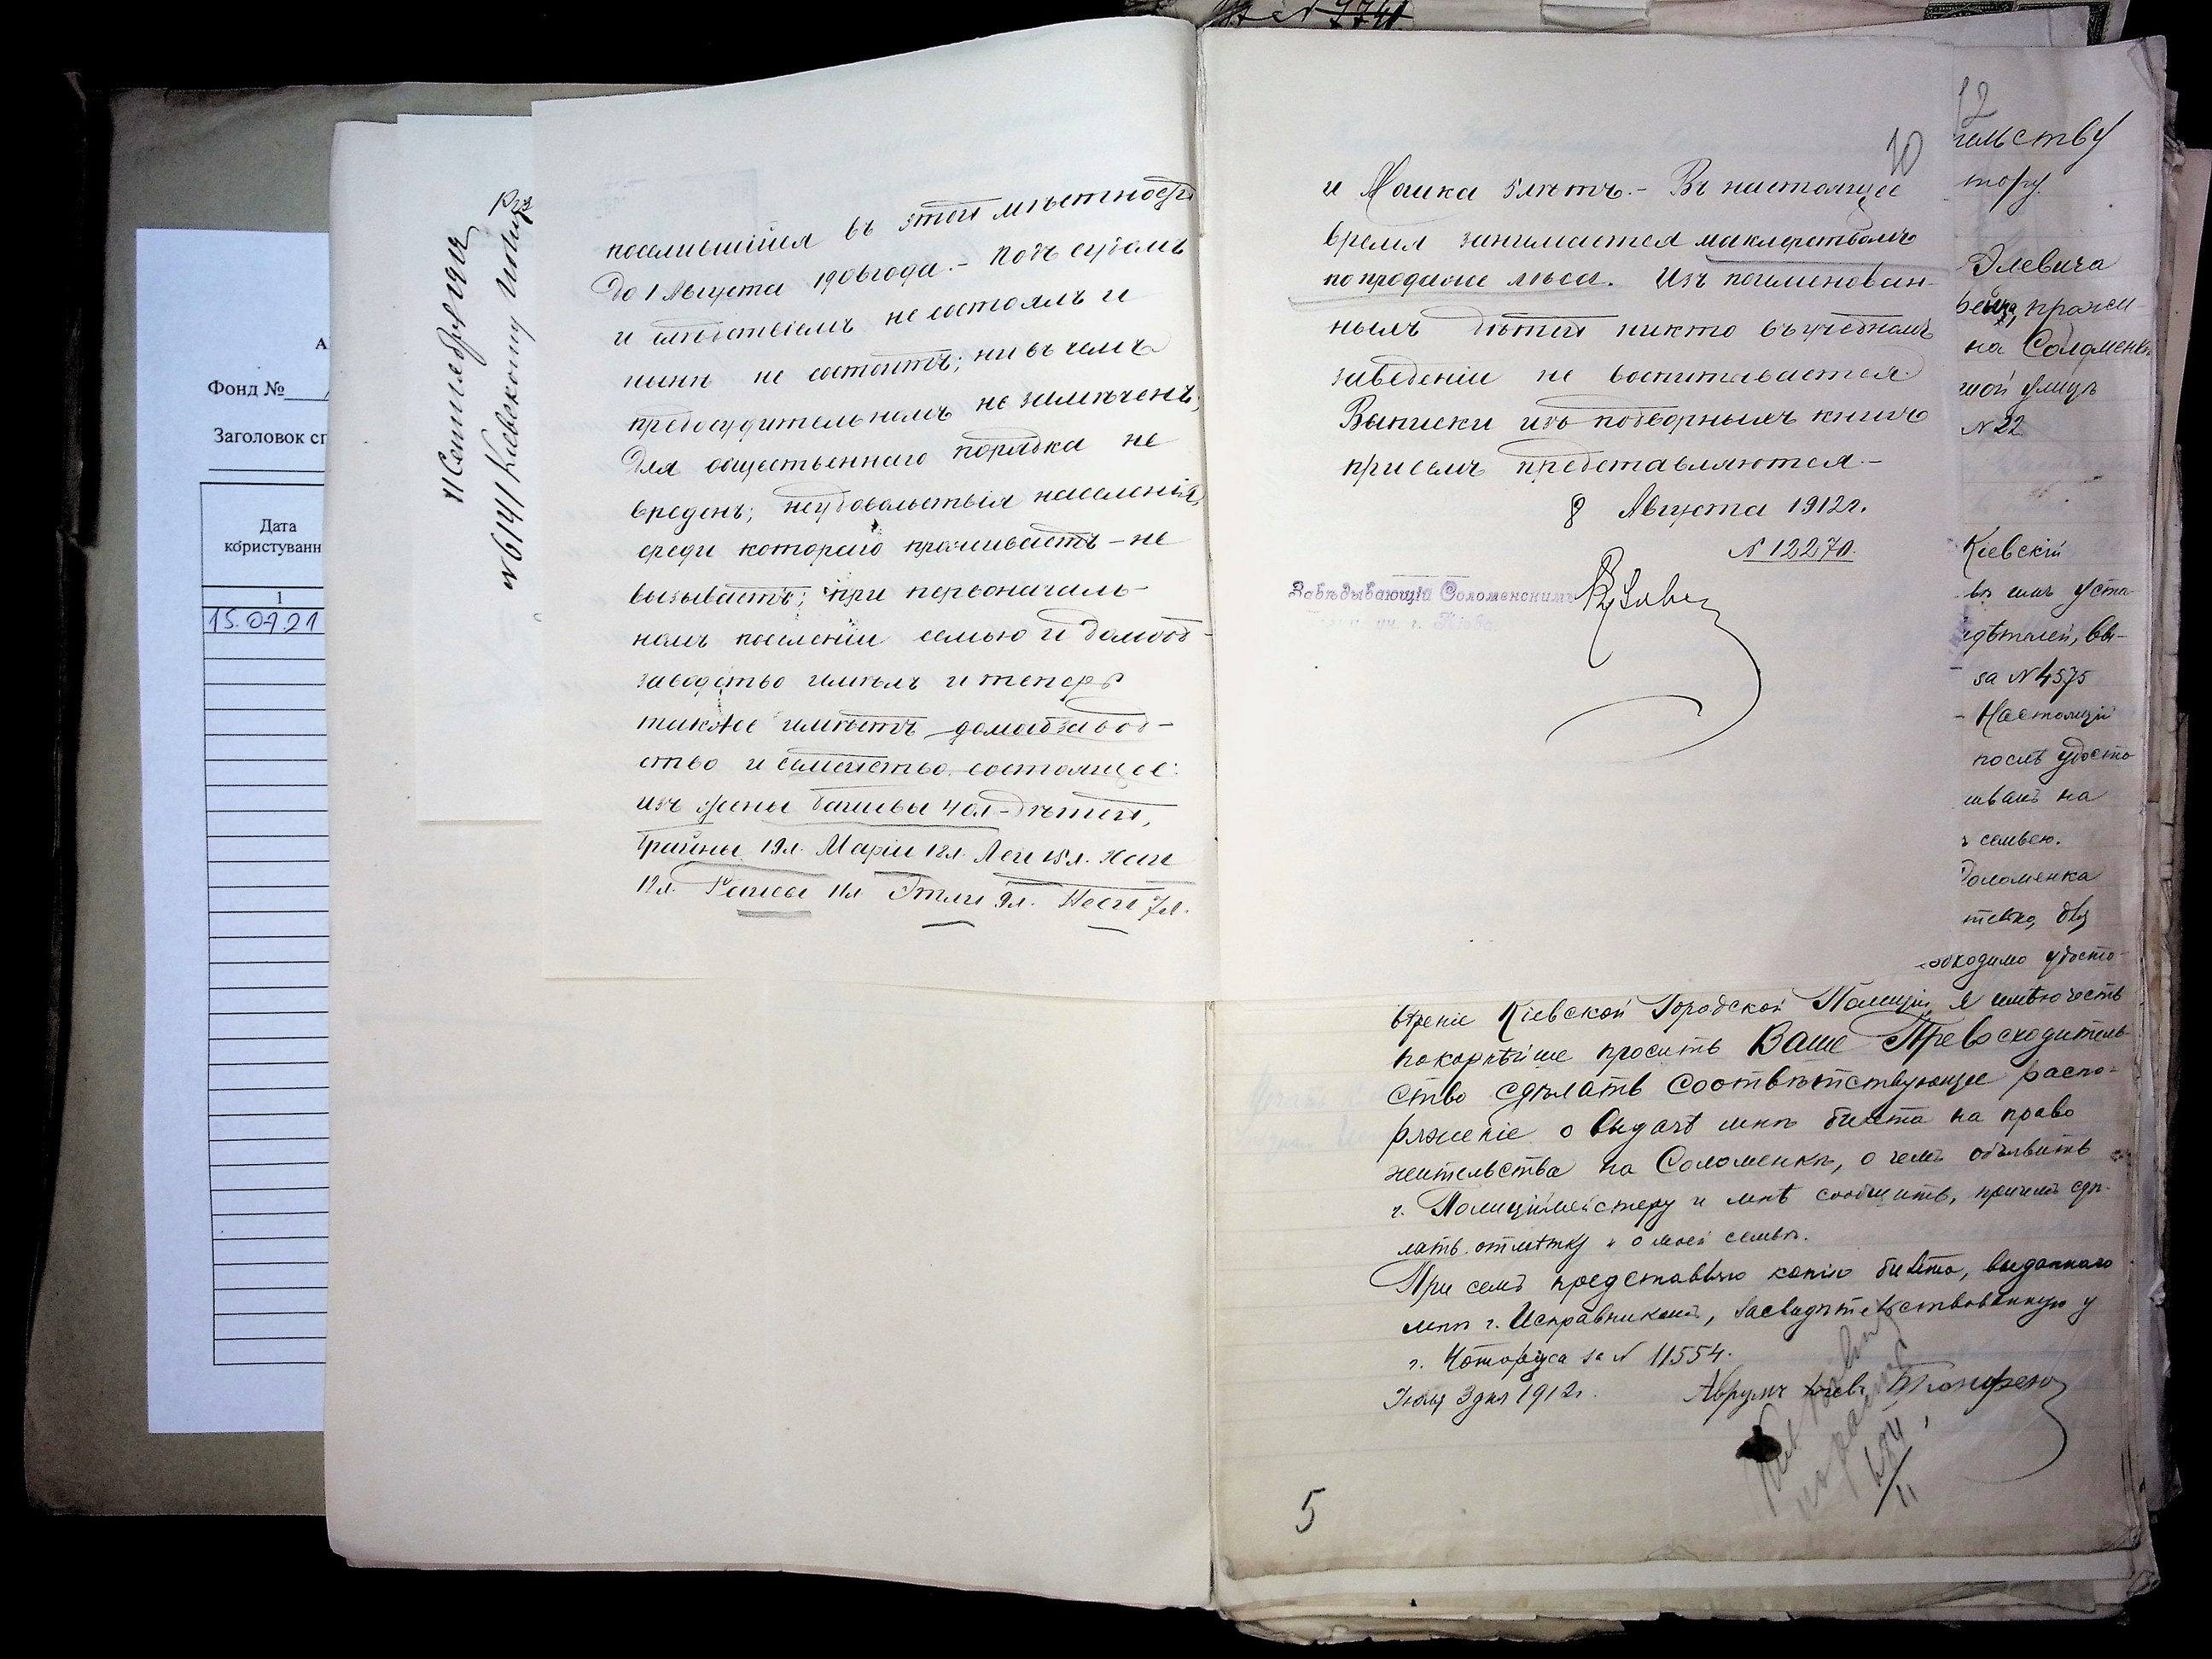 А
Фонд №
Заголовок сп
Дата
користуванн
1
15.07.21
11 Сентября
№ 6141 Киевскому
поселившійся въ этой мѣстности
до 1 Августа 1906 года. – Подъ судомъ
и слѣдствіемъ не состоялъ и
нынѣ не состоитъ; ни въ чемъ
предосудительномъ не замѣченъ;
для общественнаго порядка не
вреденъ; неудовольствія населенія,
среди котораго проживаетъ – не
вызываетъ; при первоначаль-
номъ поселеніи семью и домооб-
заводство имѣлъ и теперь
также имѣетъ домообзавод-
ство и семейство состоящее:
изъ жены Башевы 40л – дѣтей,
Брайны 19л. Маріи 18л. Леи 15л. Хаи
12л. Рейзы 11л Этли 9л. Неси 7л.
10
и Мошка 5 лѣтъ. – Въ настоящее
время занимается маклерствомъ
по продаже лѣса. Изъ поименован-
ныхъ дѣтей никто въ учебномъ
заведеніи не воспитывается.
Выписки изъ подворныхъ книгъ
при семъ представляются. –
8 Августа 1912г.
№ 12270.
Завѣдывающій Соломенскимъ
г. Кіева
12
тельству
тору
Элевича
на Соломенкѣ
ной улицѣ
№ 22
Кіевскій
въ имъ уста
дѣтелей, вы-
за № 4575
– Настоящій
послѣ удосто
семьею.
Соломенка
обходимо удосто-
вѣреніе Кіевской Городской Полиціи, я имѣю честь
покорнѣйше просить Ваше Превосходитель-
ство сдѣлать соотвѣтствующее распо-
ряженіе о выдачѣ мнѣ билета на право
жительства на Соломенкѣ, о чемъ объявить
г. Полиціймейстеру и мнѣ сообщить, причемъ сдѣ-
лать отмѣтку и о моей семьѣ.
При семъ представляю копію билета, выданнаго
мнѣ г. Исправникомъ, засвидѣтельствованную у
г. Нотаріуса за № 11554.
Іюля 3 дня 1912г. Аврумъ
5